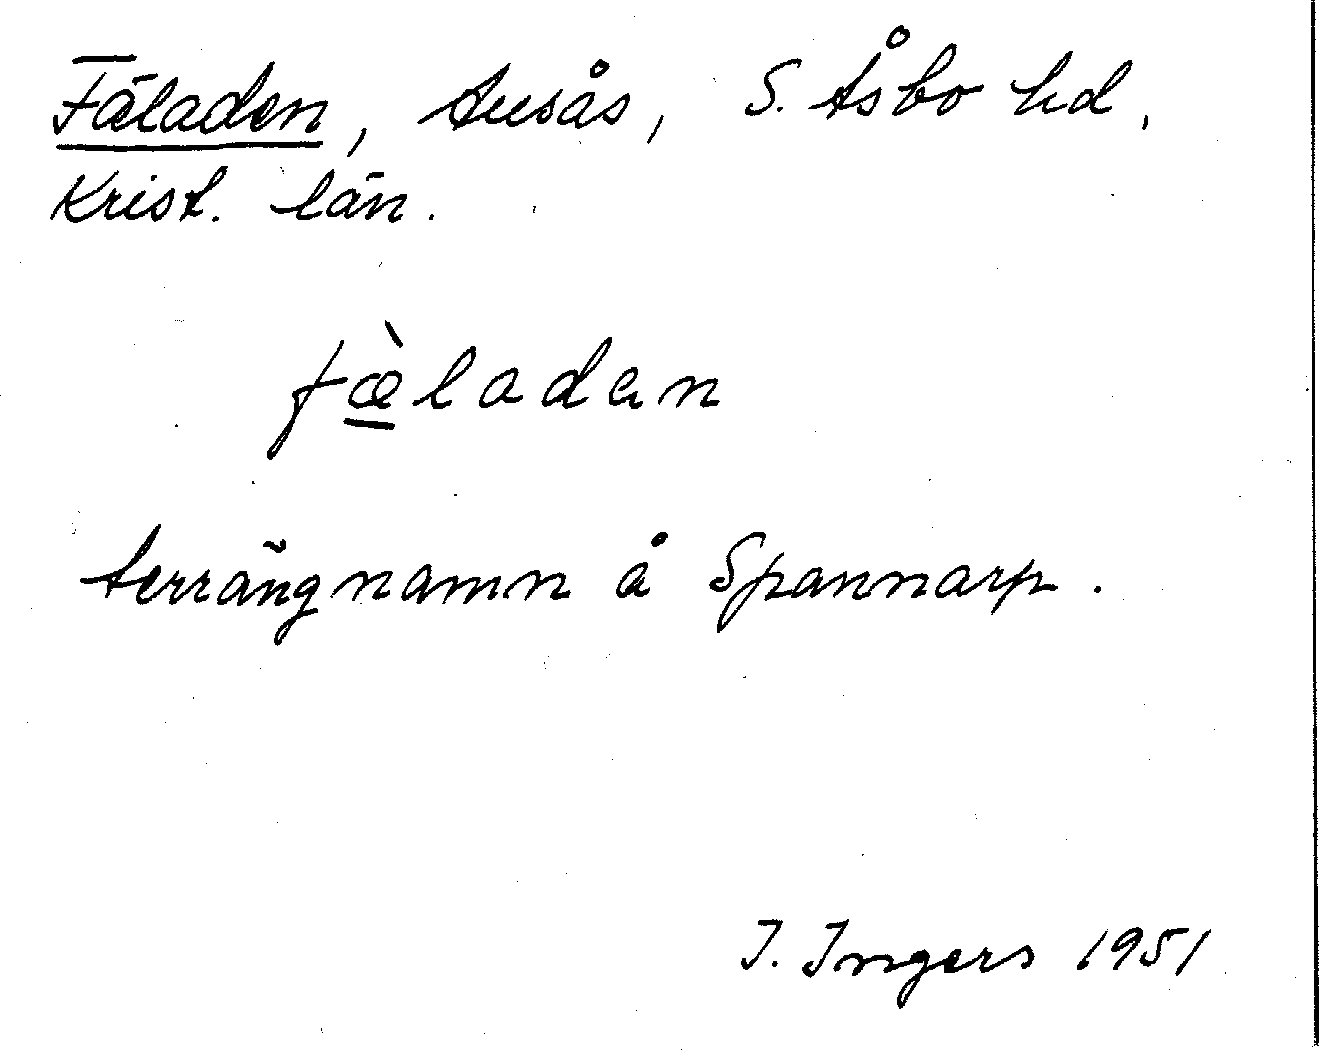 Fäladen, Ausås, S. Åsbo hd,
Krist. län.
fæ̀ladan
terrängnamn å Spannarp.
I. Ingers 1951